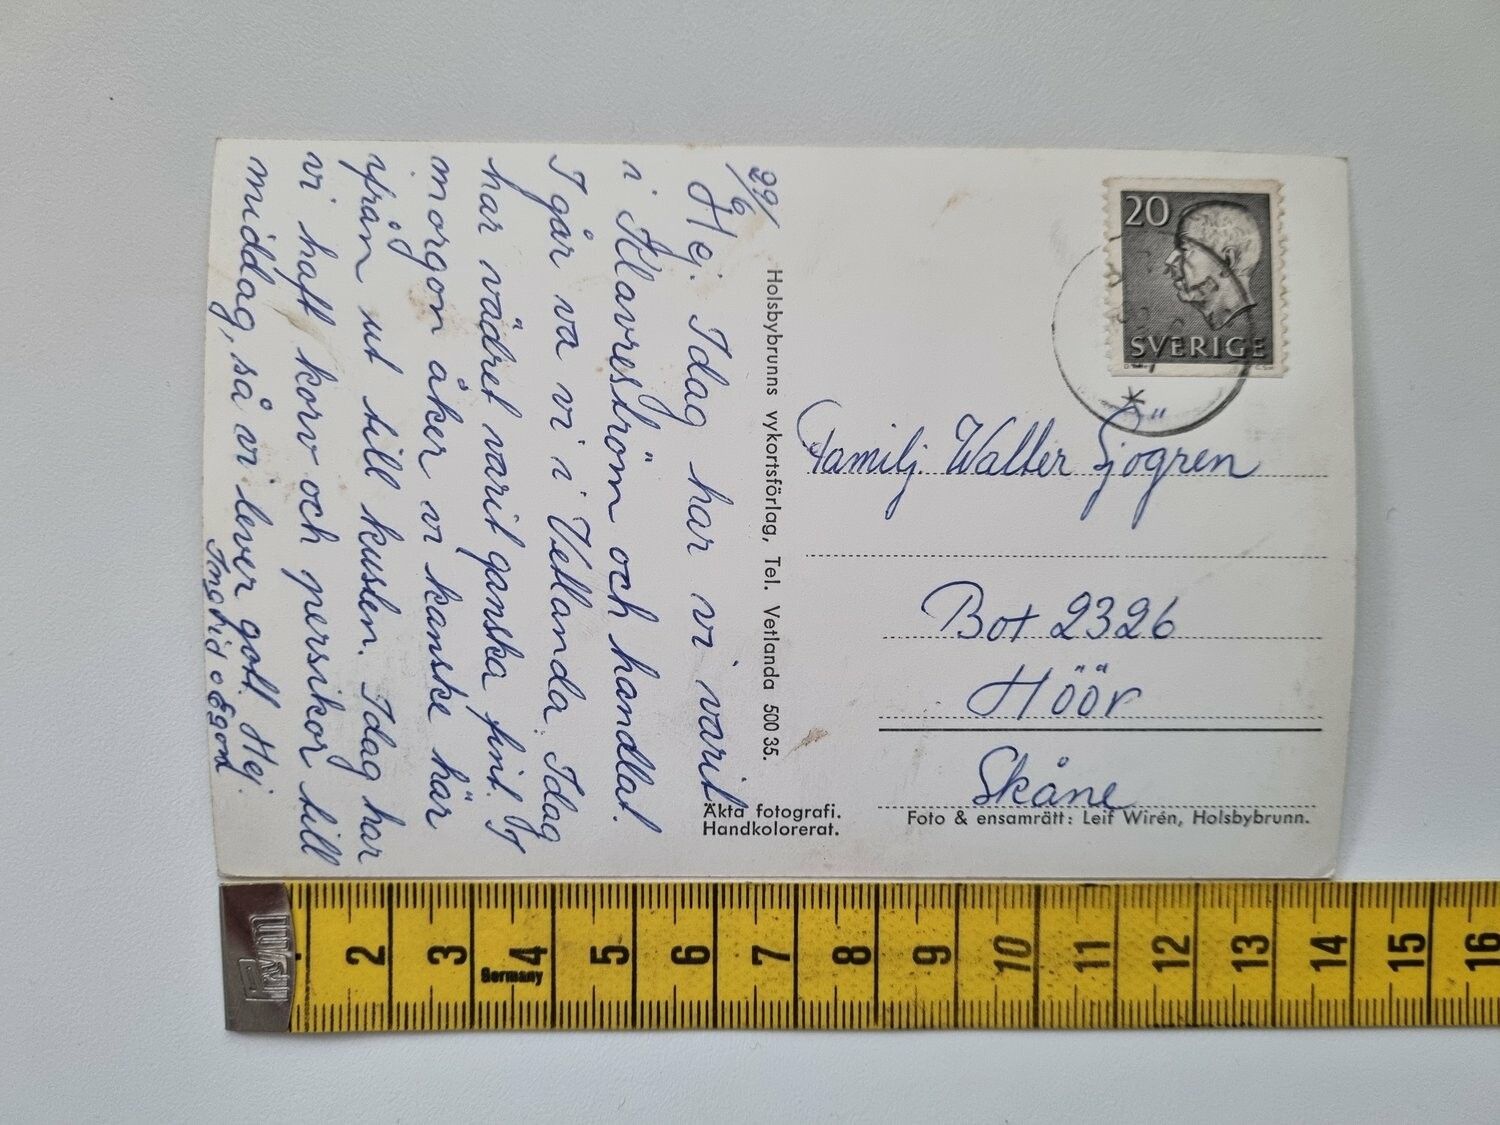 29/6
Hej. Idag har vi varit
i Klavreström och handlat.
I går va vi i Vetlanda. Idag
har vädret varit ganska fint. I
morgon åker vi kanske här
ifrån ut till kusten. Idag har
vi haft korv och persikor till
middag, så vi lever gott. Hej.
Ingrid o Egon
Holsbybrunns vykortsförlag, Tel. Vetlanda 500 35.
Äkta fotografi.
Handkolorerat.
20
SVERIGE
Familj. Walter Sjögren
Box 2326
Höör
Skåne
Foto & ensamrätt: Leif Wirén, Holsbybrunn.
2 3 4 5 6 7 8 9 10 11 12 13 14 15 16
Germany